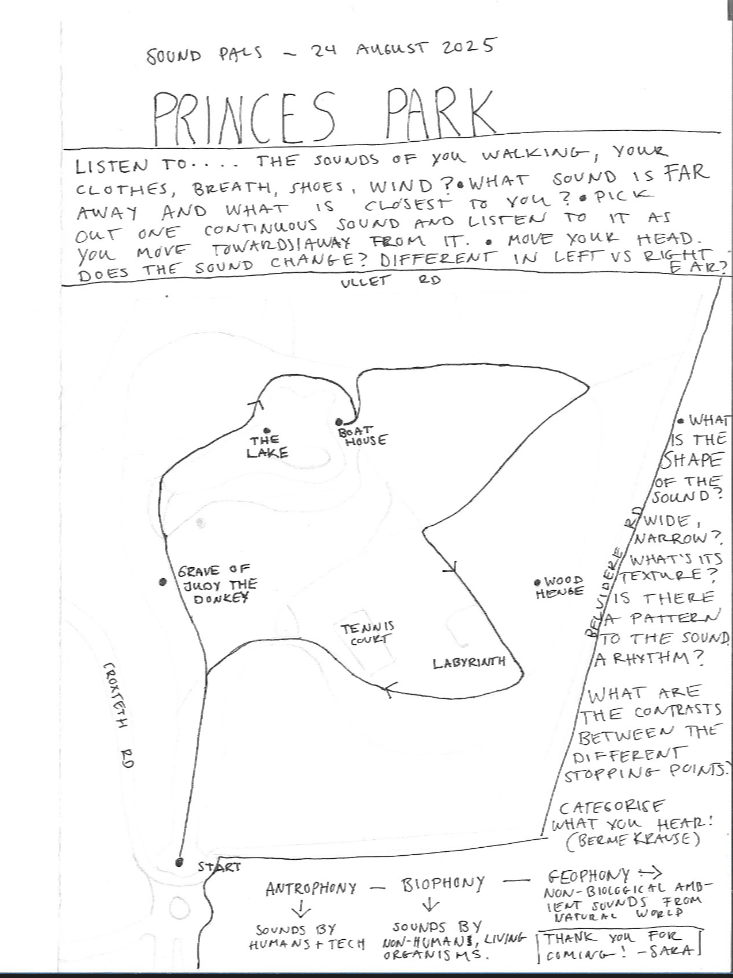 SOUND PALS – 24 AUGUST 2025
PRINCES PARK
LISTEN TO.... THE SOUNDS OF YOU WALKING, YOUR
CLOTHES, BREATH, SHOES, WIND? • WHAT SOUND IS FAR
AWAY AND WHAT IS CLOSEST TO YOU? • PICK
OUT ONE CONTINUOUS SOUND AND LISTEN TO IT AS
YOU MOVE TOWARDS/AWAY FROM IT. • MOVE YOUR HEAD.
DOES THE SOUND CHANGE? DIFFERENT IN LEFT VS RIGHT
EAR?
ULLET RD
THE
LAKE
BOAT
HOUSE
GRAVE OF
JUDY THE
DONKEY
WOOD
HENGE
TENNIS
COURT
LABYRINTH
CROXTETH RD
BELVIDERE RD
• WHAT
IS THE
SHAPE
OF THE
SOUND?
WIDE,
NARROW?
WHAT'S ITS
TEXTURE?
IS THERE
A PATTERN
TO THE SOUND
A RHYTHM?
WHAT ARE
THE CONTRASTS
BETWEEN THE
DIFFERENT
STOPPING POINTS?
CATEGORISE
WHAT YOU HEAR!
(BERNIE KRAUSE)
START
ANTROPHONY — BIOPHONY — GEOPHONY →
NON-BIOLOGICAL AMB-
IENT SOUNDS FROM
NATURAL WORLD
SOUNDS BY
HUMANS + TECH
SOUNDS BY
NON-HUMANS, LIVING
ORGANISMS.
THANK YOU FOR
COMING! – SARA